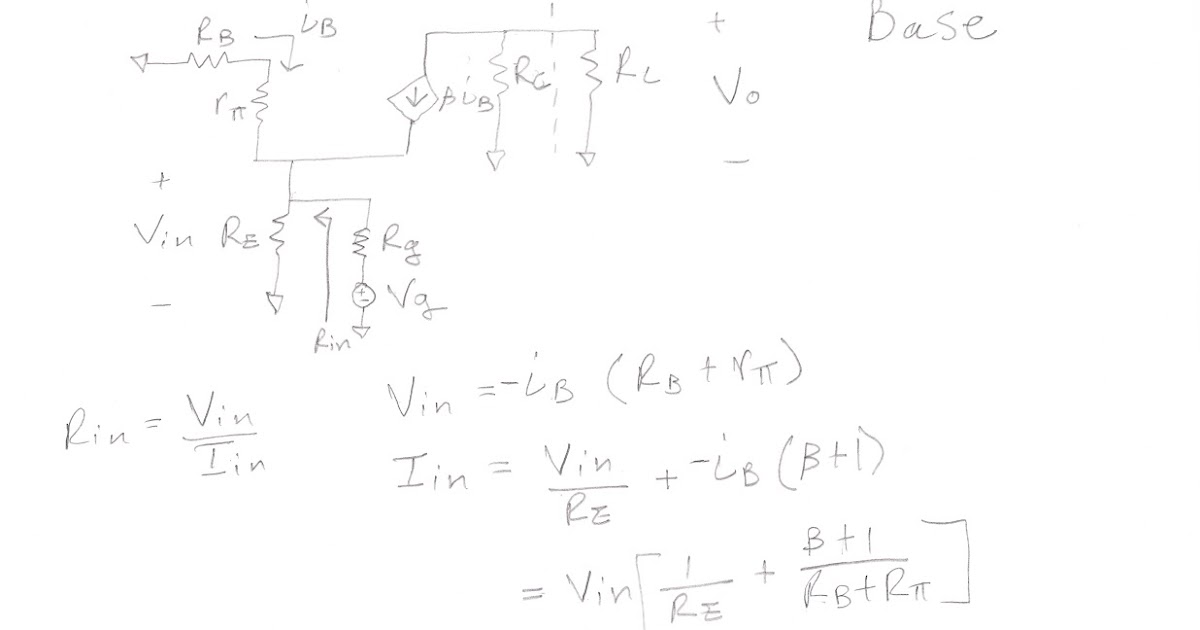 Base
R_B i_B
r_π β i_B R_C R_L
+
V_o
−
+
V_in R_E R_g
− V_g
R_in
R_in = V_in / I_in
V_in = -i_B (R_B + r_π)
I_in = V_in / R_E + -i_B (β+1)
= V_in [ 1 / R_E + β+1 / R_B+R_π ]